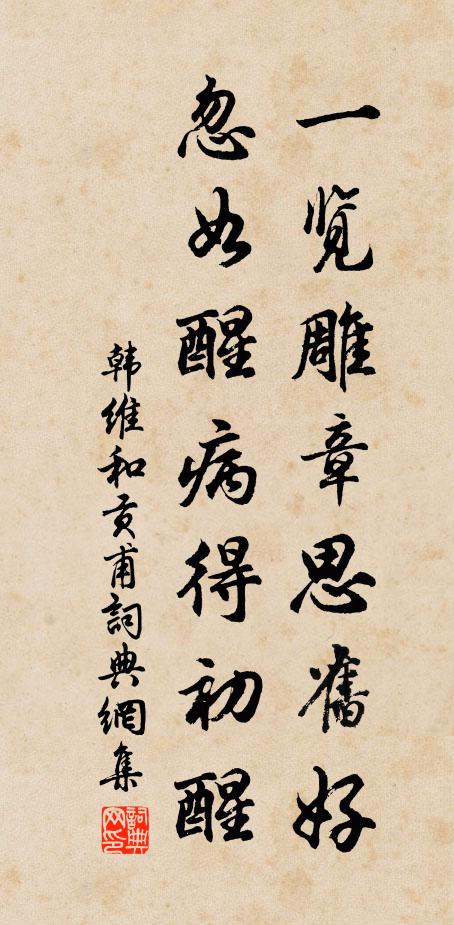 一览雕章思舊好
忽如醒病得初醒
韩维和贡甫詞典網集
詞典網印